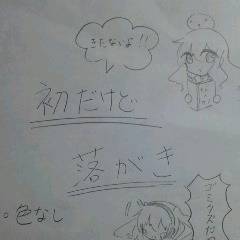 きたないよ!!
初だけど
落がき
。色なし
ゴミクズだっ